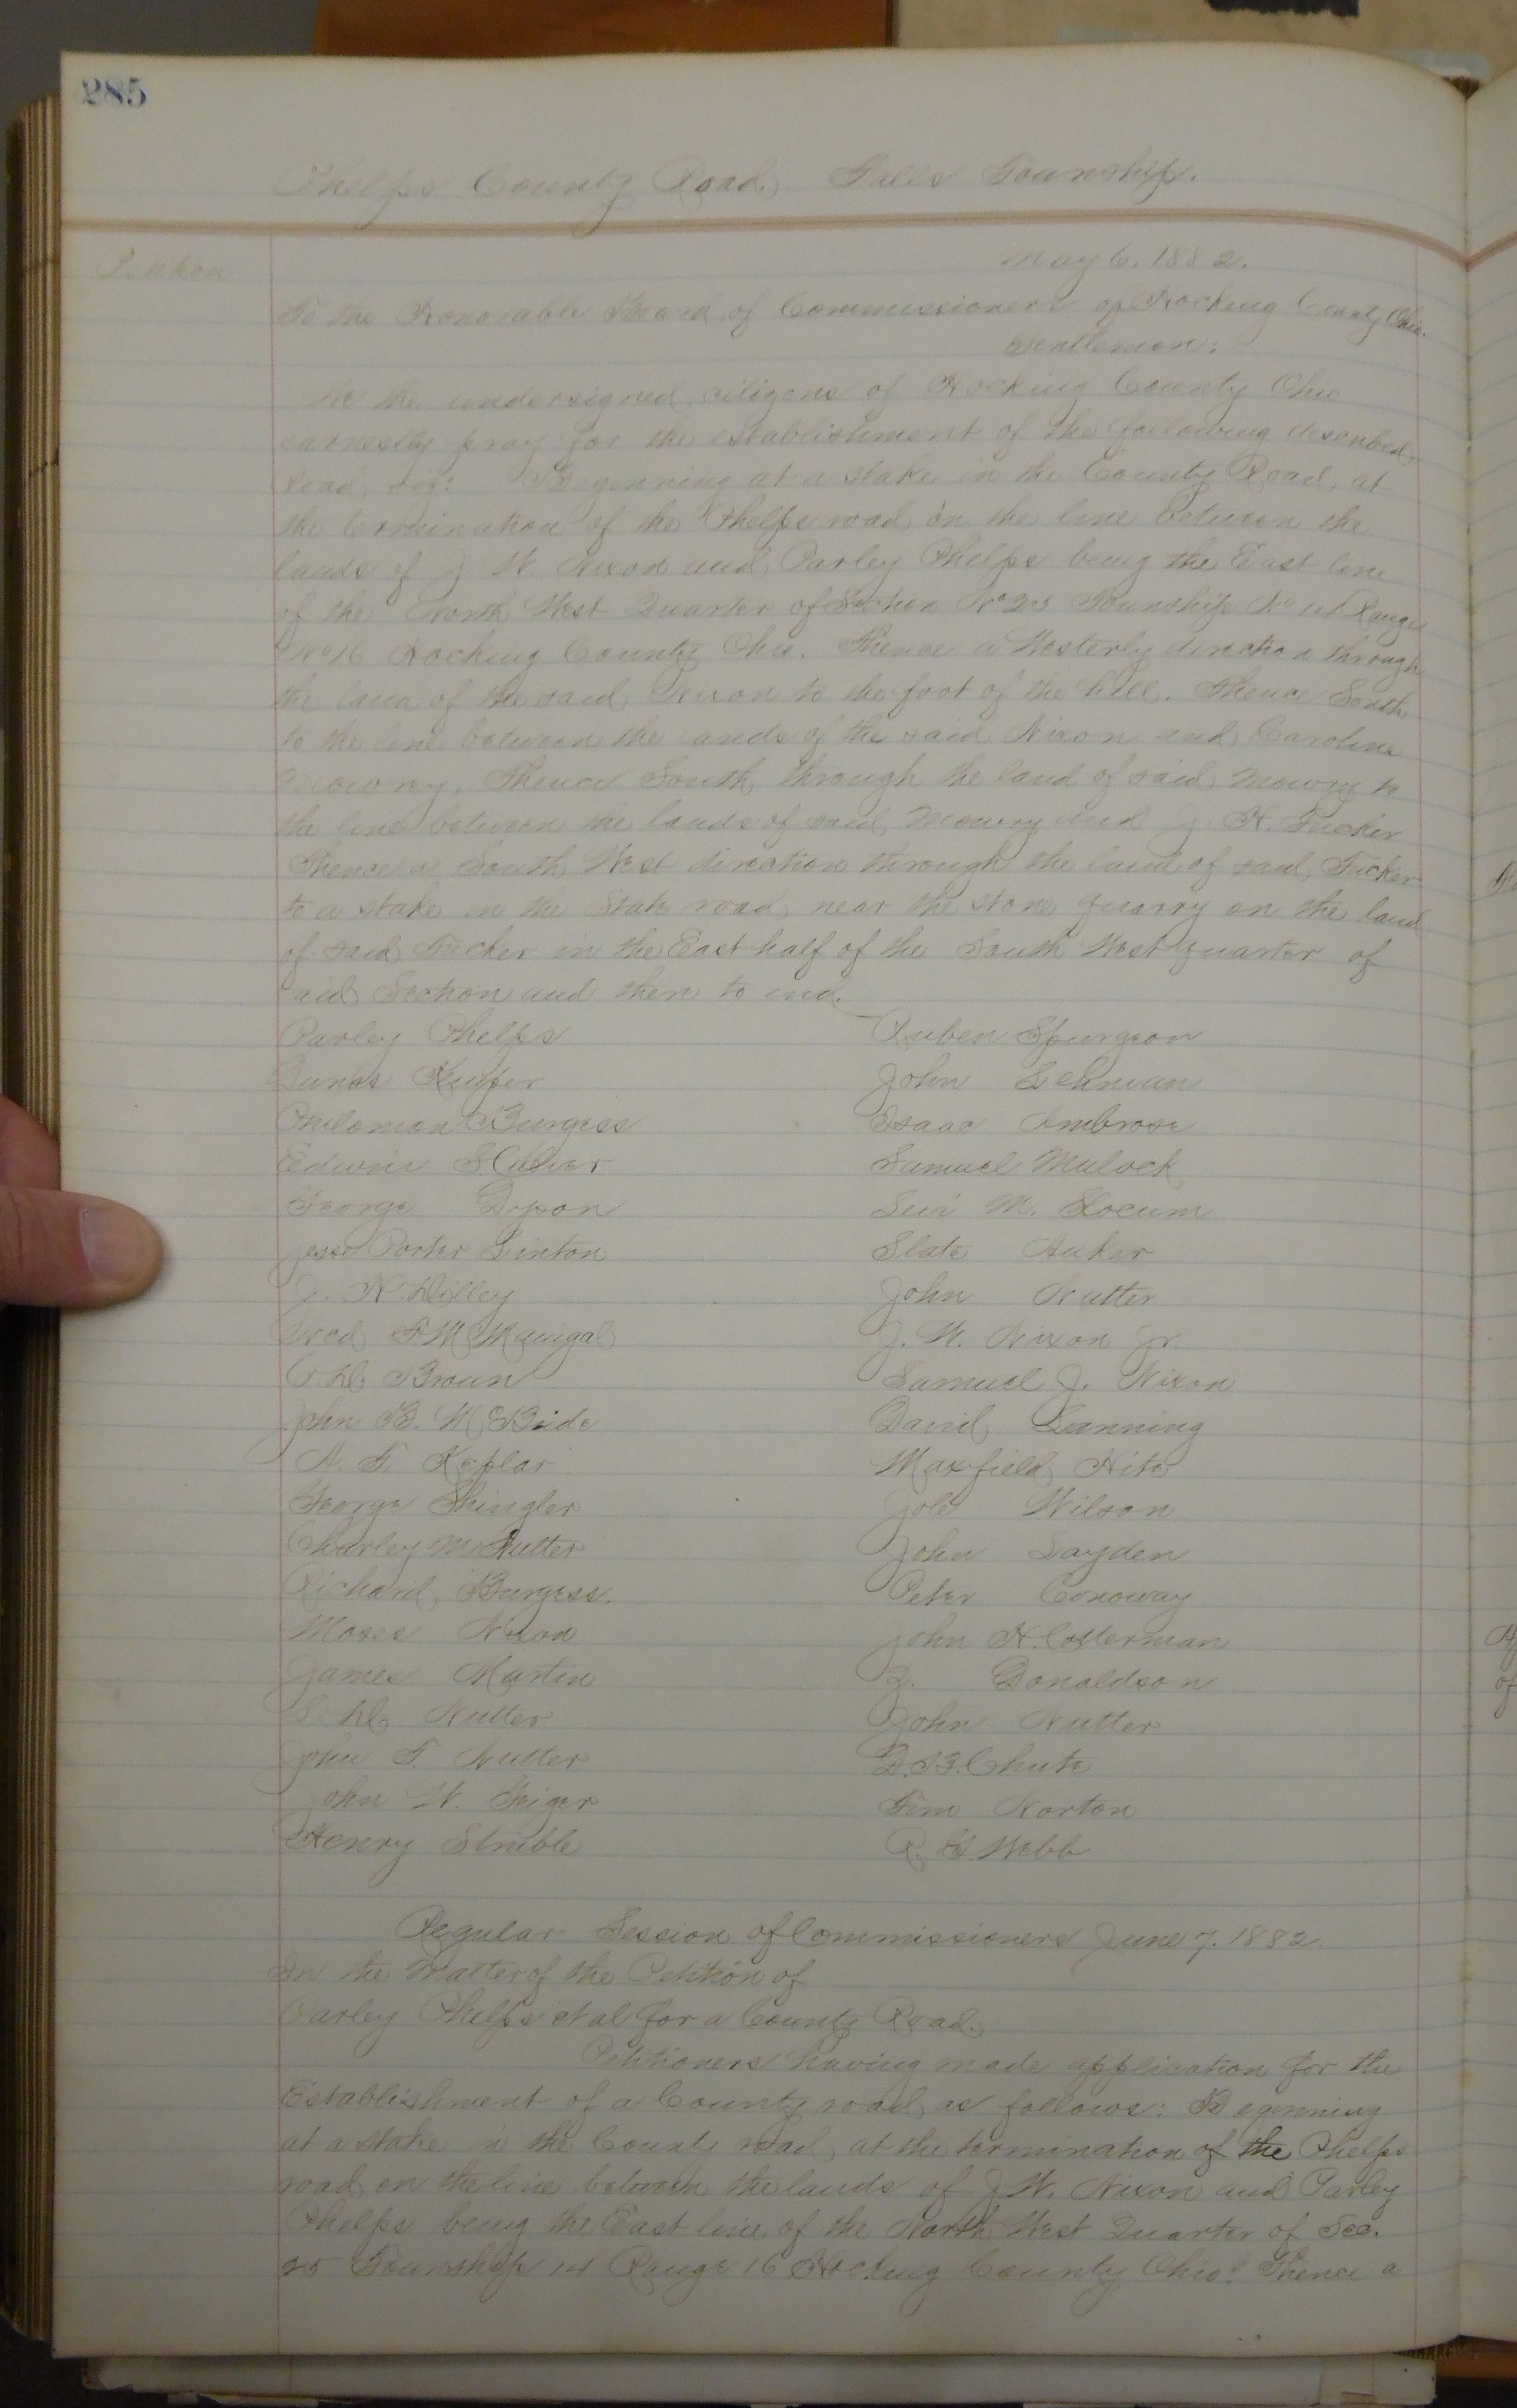 285
Phelps County Road, Falls Township.
Petition
May 6. 1882.
To the Honorable Board of Commissioners of Hocking County Ohio.
Gentlemen:
We the undersigned citizens of Hocking County Ohio
earnestly pray for the establishment of the following described
road, viz: Beginning at a stake in the County Road, at
the termination of the Phelps road, on the line between the
lands of J. W. Nixon and Parley Phelps being the East line
of the North West Quarter of Section No 25 Township No 14 Range
No 16 Hocking County Ohio. Thence a Westerly direction through
the land of the said Nixon to the foot of the hill. Thence South
to the line between the lands of the said Nixon and Caroline
Mowry. Thence South through the land of said Mowry to
the line between the lands of said Mowry and J. H. Tucker
Thence a South West direction through the land of said Tucker
to a stake in the State road near the stone quarry on the land
of said Tucker in the East half of the South West quarter of
said Section and there to end.
Parley Phelps
Ruben Spurgeon
John Lehman
Philomon Burgess
Isaac Ambrose
Edwin
Samuel Mulock
George Dyson
Levi M. Slocum
Jesse Porter Linton
Slate Auker
J. N. Dilley
John Nutter
J. W. Nixon Jr.
Brown
Samuel J. Nixon
John B. McBride
David Lanning
N. F. Keplar
Maxfield Hite
George Shingler
Job Wilson
Charley M. Nutter
John Layden
Richard Burgess.
Peter Conoway
Moses Nixon
John H. Colterman
James Martin
Z. Donaldson
Nutter
John Nutter
John F. Nutter
D. B. Chute
John W. Geiger
Tim Norton
Henry Strible
R. G. Webb
Regular Session of Commissioners June 7. 1882.
In the Matter of the Petition of
Parley Phelps et al for a County Road.
Petitioners having made application for the
Establishment of a County road, as follows: Beginning
at a stake in the County road, at the termination of the Phelps
road on the line between the lands of J. W. Nixon and Parley
Phelps being the East line of the North West Quarter of Sec.
25 Township 14 Range 16 Hocking County Ohio: Thence a